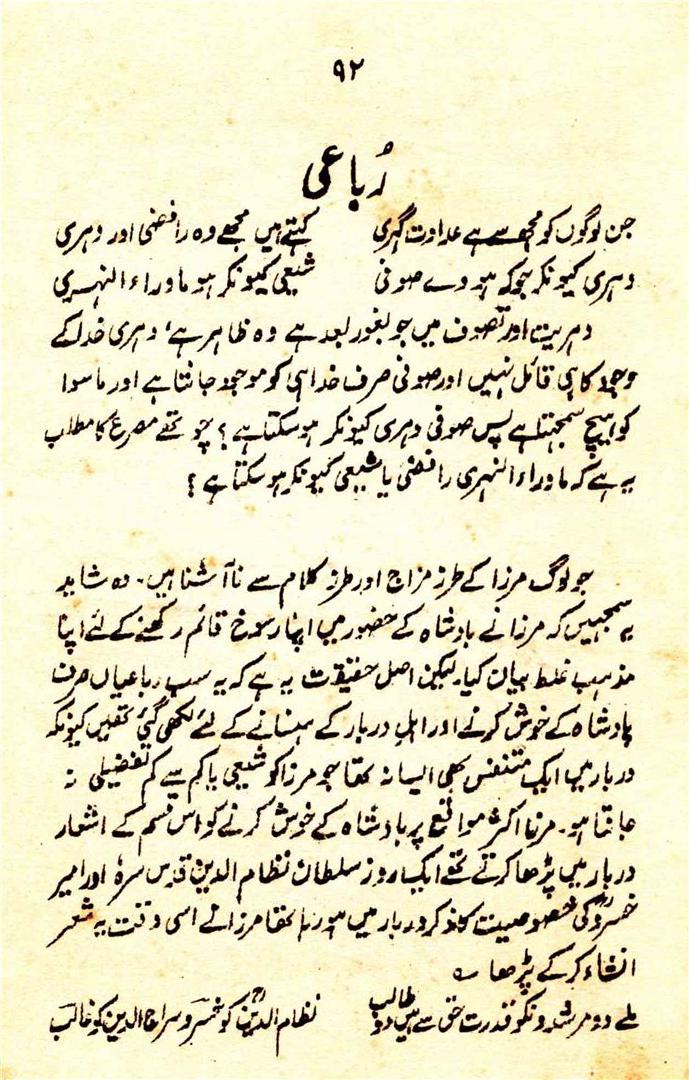 ۹۲
رُباعی
جن لوگوں کو مجھ سے ہے عداوت گہری کہتے ہیں مجھے وہ رافضی اور دہری
دہری کیونکر ہو جو کہ ہووے صوفی شیعی کیونکر ہو ماوراء النہری
دہریت اور تصوف میں جو بُعد ہے وہ ظاہر ہے، دہری خدا کے
وجود کا ہی قائل نہیں اور صوفی صرف خدا ہی کو موجود جانتا ہے اور ماسوا
کو ہیچ سمجھتا ہے پس صوفی دہری کیونکر ہو سکتا ہے؟ چوتھے مصرع کا مطلب
یہ ہے کہ ماوراء النہری رافضی یا شیعی کیونکر ہو سکتا ہے؟
جو لوگ مرزا کے طرز مزاج اور طرز کلام سے ناآشنا ہیں۔ وہ شاید
یہ سمجہیں کہ مرزا نے بادشاہ کے حضور میں اپنا رسوخ قائم رکھنے کے لئے اپنا
مذہب غلط بیان کیا۔ لیکن اصل حقیقت یہ ہے کہ یہ سب رباعیاں صرف
بادشاہ کے خوش کرنے اور اہلِ دربار کے ہنسانے کے لئے لکھی گئی تھیں کیونکہ
دربار میں ایک متنفس بھی ایسا نہ تھا جو مرزا کو شیعی یا کم سے کم تفضیلی نہ
جانتا ہو۔ مرزا اکثر موقع پر بادشاہ کے خوش کرنے کو اس قسم کے اشعار
دربار میں پڑھا کرتے تھے ایک روز سلطان نظام الدین قدس سرہٗ اور امیر
خسروؒ کی خصوصیت کا ذکر دربار میں ہو رہا تھا مرزا نے اسی وقت یہ شعر
انشاء کر کے پڑھا ؎
ملے دو مرشدونکو قدرت حق سے ہیں دو طالب نظام الدینؒ کو خسرو سراج الدین کو غالب